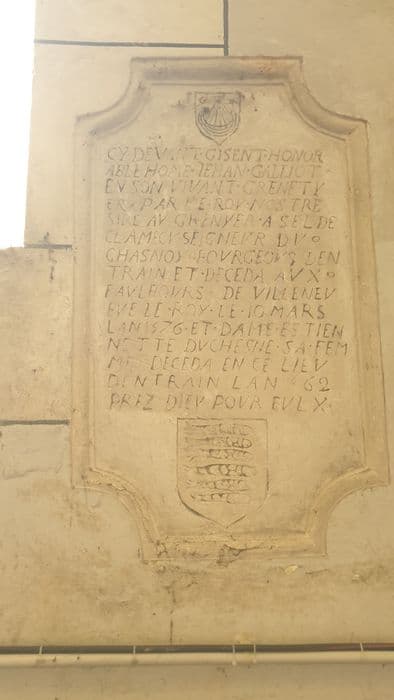 CY·DEVANT·GISENT·HONOR
ABLE HOME·IEHAN·GALLIOT·
EN SON VIVANT GRENETY
ER·PAR LE·ROY·NOSTRE
SIRE AV GRENYER·A SEL DE
CLAMECY SEIGNEVR DV
CHASNOY BOVRGEOYS DEN
TRAIN ET·DECEDA AVX
FAVLBOVRS DE VILLENEV
FVE LE·ROY·LE·10 MARS
LAN 1576·ET·DAME·ESTIEN
NETTE DVCHESNE·SA·FEM
ME DECEDA EN CE LIEV
DENTRAIN LAN 62
PREZ DIEV POVR EVLX·